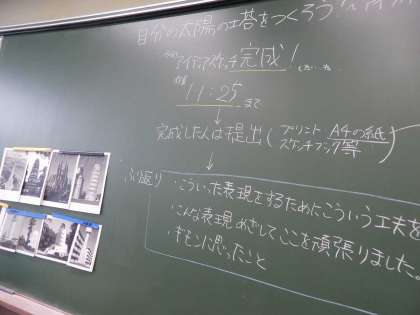 自分の太陽の塔をつくろう
アイディアスケッチ完成!
11:25まで
↓
完成した人は提出(プリント A4の紙
スケッチブック等)
↓
ふり返り ・こういった表現をするためにこういう工夫を
・こんな表現めざしてここを頑張りました。
・ギモンに思ったこと